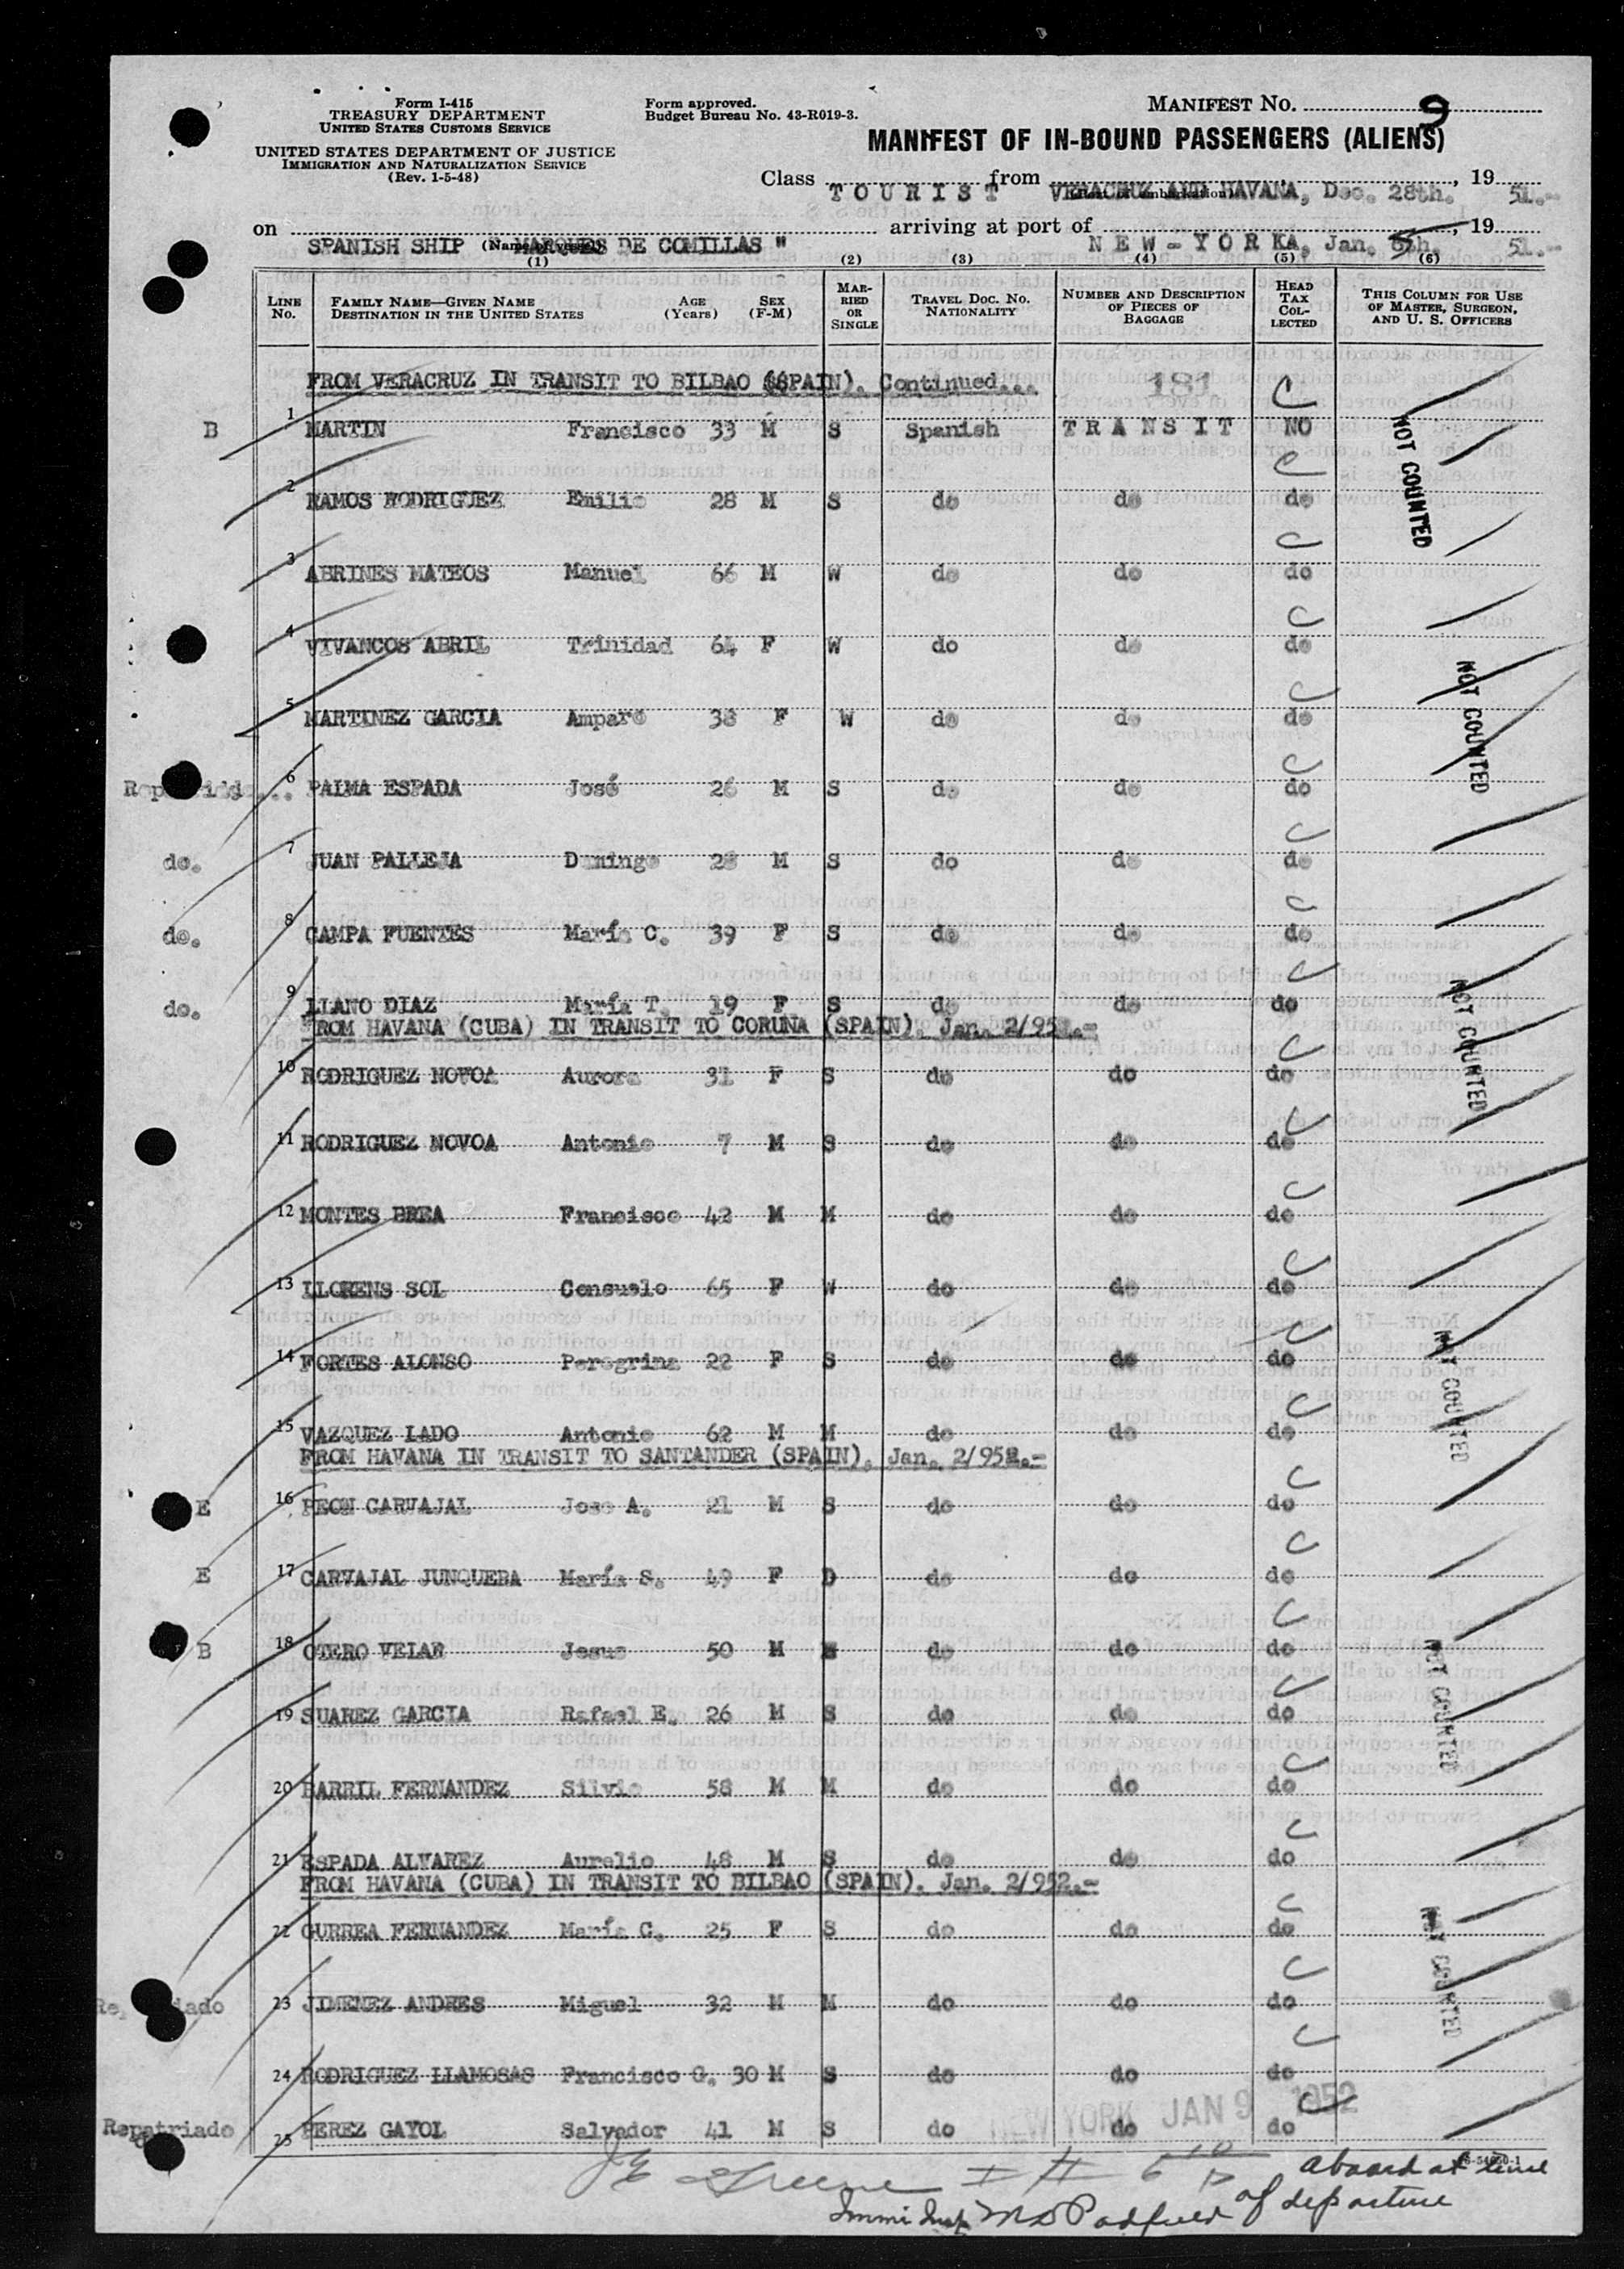 Form I-415
TREASURY DEPARTMENT
UNITED STATES CUSTOMS SERVICE
UNITED STATES DEPARTMENT OF JUSTICE
IMMIGRATION AND NATURALIZATION SERVICE
(Rev. 1-5-48)
Form approved.
Budget Bureau No. 43-R019-3.
MANIFEST NO. 9
MANIFEST OF IN-BOUND PASSENGERS (ALIENS)
Class TOURIST from VERACRUZ AND HAVANA, Dec. 28th., 19 51.-
on SPANISH SHIP (Name of vessel) "MARQUES DE COMILLAS" arriving at port of NEW-YORK, Jan. 5th., 19 51.-
(1) (2) (3) (4) (5) (6)
LINE No. FAMILY NAME—GIVEN NAME DESTINATION IN THE UNITED STATES AGE (Years) SEX (F-M) MARRIED OR SINGLE TRAVEL DOC. NO. NATIONALITY NUMBER AND DESCRIPTION OF PIECES OF BAGGAGE HEAD TAX COLLECTED THIS COLUMN FOR USE OF MASTER, SURGEON, AND U. S. OFFICERS
FROM VERACRUZ IN TRANSIT TO BILBAO (SPAIN). Continued... 181 C
B 1 MARTIN Francisco 33 M S Spanish TRANSIT NO
C NOT COUNTED
2 RAMOS RODRIGUEZ Emilio 28 M S do do do
C
3 ABRINES MATEOS Manuel 66 M W do do do
C
4 VIVANCOS ABRIL Trinidad 64 F W do do do
C NOT COUNTED
5 MARTINEZ GARCIA Amparo 38 F W do do do
C
6 PALMA ESPADA José 26 M S do do do
C
do. 7 JUAN PALLEJA Domingo 28 M S do do do
C
do. 8 CAMPA FUENTES María C. 39 F S do do do
C
do. 9 LLANO DIAZ María T. 19 F S do do do
FROM HAVANA (CUBA) IN TRANSIT TO CORUNA (SPAIN). Jan. 2/952.-
C NOT COUNTED
10 RODRIGUEZ NOVOA Aurora 31 F S do do do
C
11 RODRIGUEZ NOVOA Antonio 7 M S do do do
C
12 MONTES BREA Francisco 42 M M do do do
C
13 LLORENS SOL Consuelo 65 F W do do do
C
14 FORTES ALONSO Peregrina 22 F S do do do
C NOT COUNTED
15 VAZQUEZ LADO Antonio 62 M M do do do
FROM HAVANA IN TRANSIT TO SANTANDER (SPAIN). Jan. 2/952.-
C
E 16 PEON CARVAJAL Jose A. 21 M S do do do
C
E 17 CARVAJAL JUNQUERA María S. 49 F D do do do
C
B 18 OTERO VELAR Jesus 50 M do do do
C NOT COUNTED
19 SUAREZ GARCIA Rafael E. 26 M S do do do
C
20 BARRIL FERNANDEZ Silvio 58 M M do do do
C
21 ESPADA ALVAREZ Aurelio 48 M S do do do
FROM HAVANA (CUBA) IN TRANSIT TO BILBAO (SPAIN). Jan. 2/952.-
C
22 GURREA FERNANDEZ María C. 25 F S do do do
C NOT COUNTED
23 JIMENEZ ANDRES Miguel 32 M M do do do
C
24 RODRIGUEZ LLAMOSAS Francisco G. 30 M S do do do
NEW YORK JAN 9 1952 C
Repatriado 25 PEREZ GAYOL Salvador 41 M S do do do
Greene aboard at time
Immi Insp M D Padfield of departure